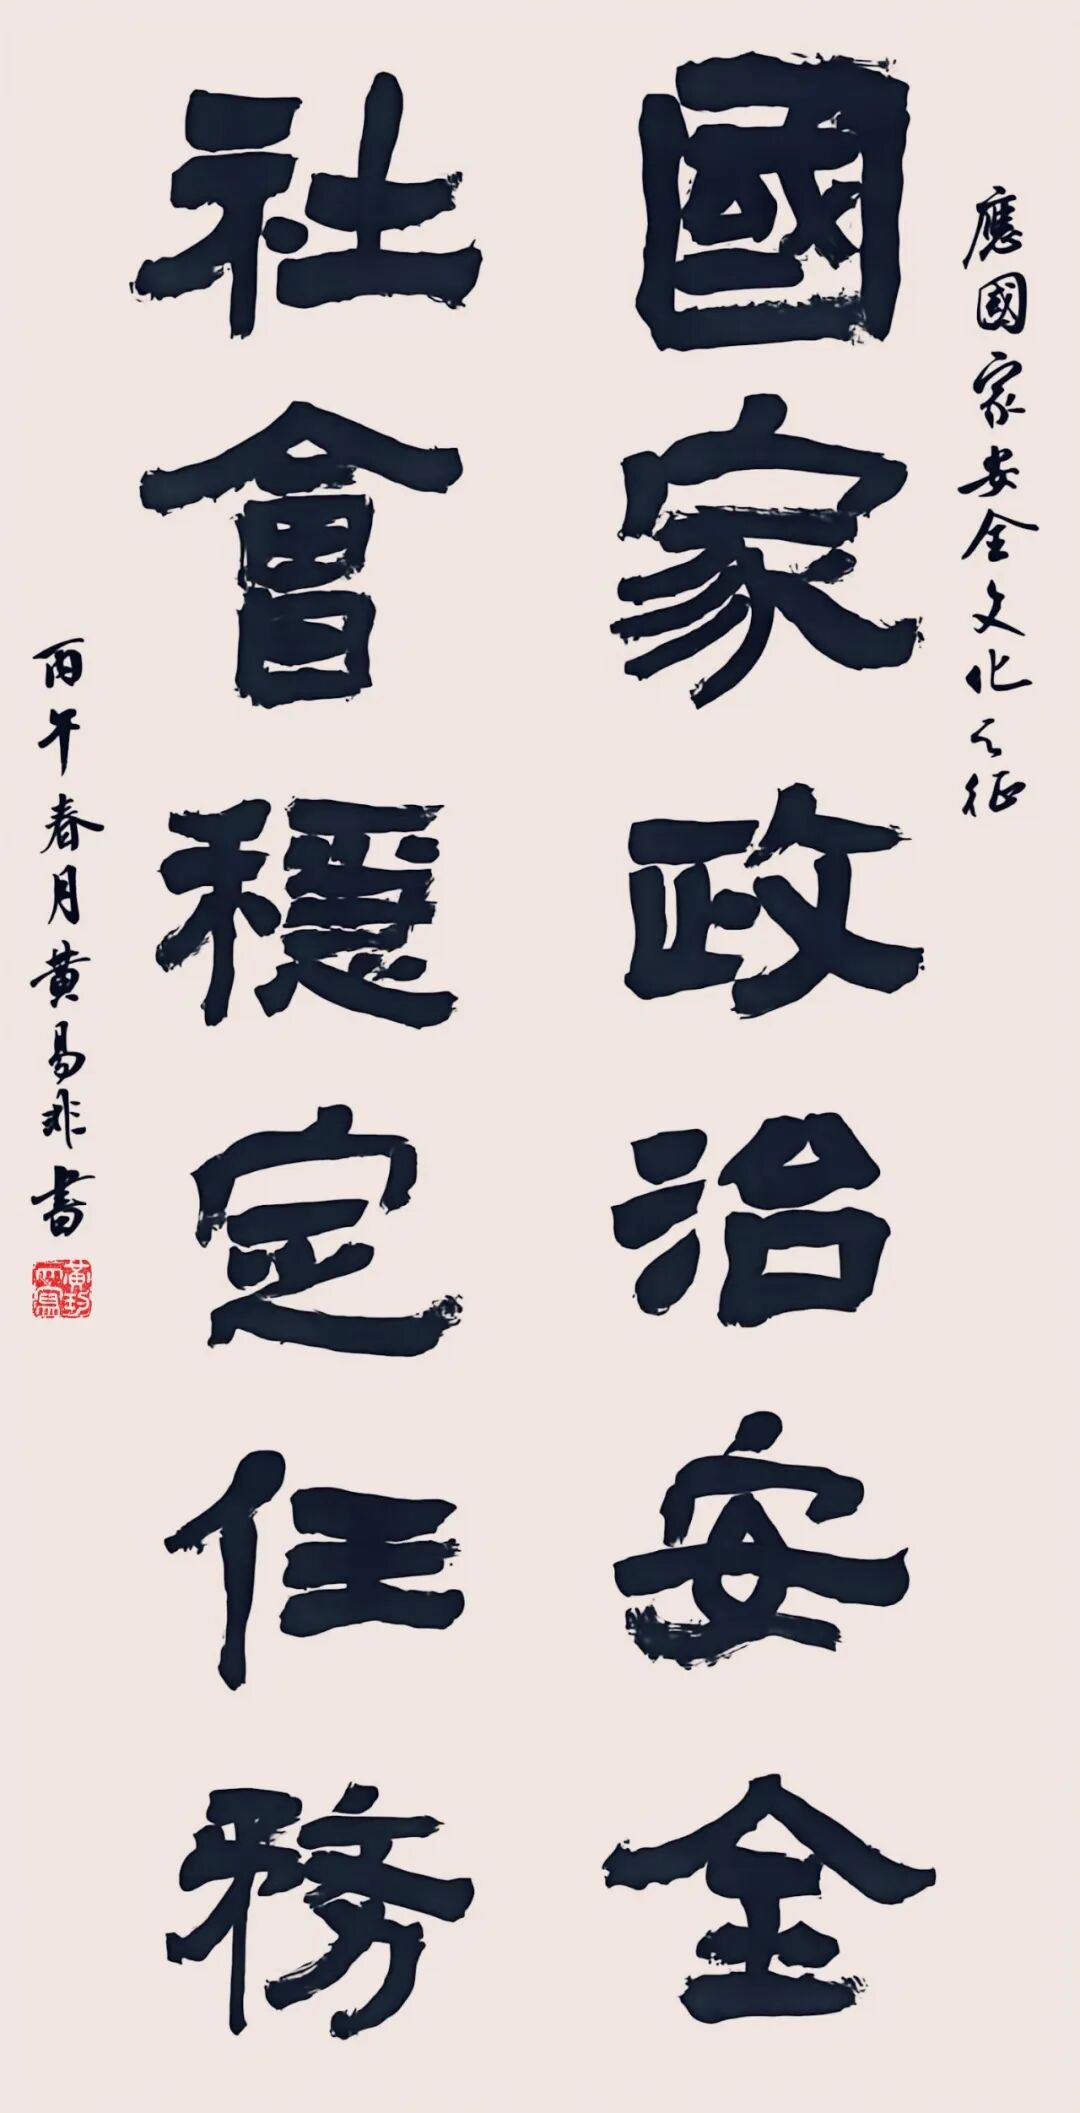 應國家安全文化之征
國家政治安全
社會穩定任務
丙午春月黄易非書